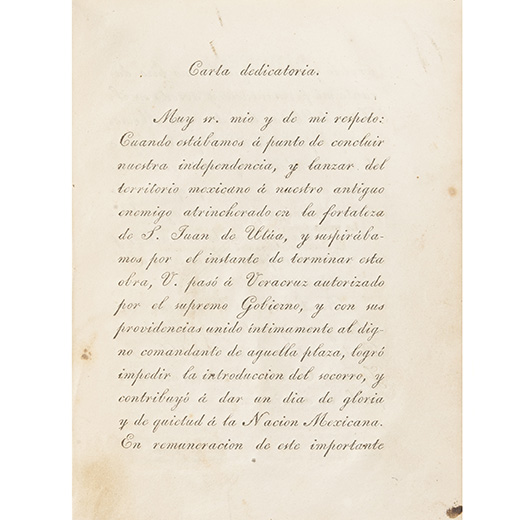 Carta dedicatoria.
Muy sr. mio y de mi respeto:
Cuando estábamos á punto de concluir
nuestra independencia, y lanzar del
territorio mexicano á nuestro antiguo
enemigo atrincherado en la fortaleza
de S. Juan de Ulúa, y suspirába-
mos por el instante de terminar esta
obra, V. pasó á Veracruz autorizado
por el supremo Gobierno, y con sus
providencias unido íntimamente al dig-
no comandante de aquella plaza, logró
impedir la introduccion del socorro, y
contribuyó á dar un dia de gloria
y de quietud á la Nacion Mexicana.
En remuneracion de este importante